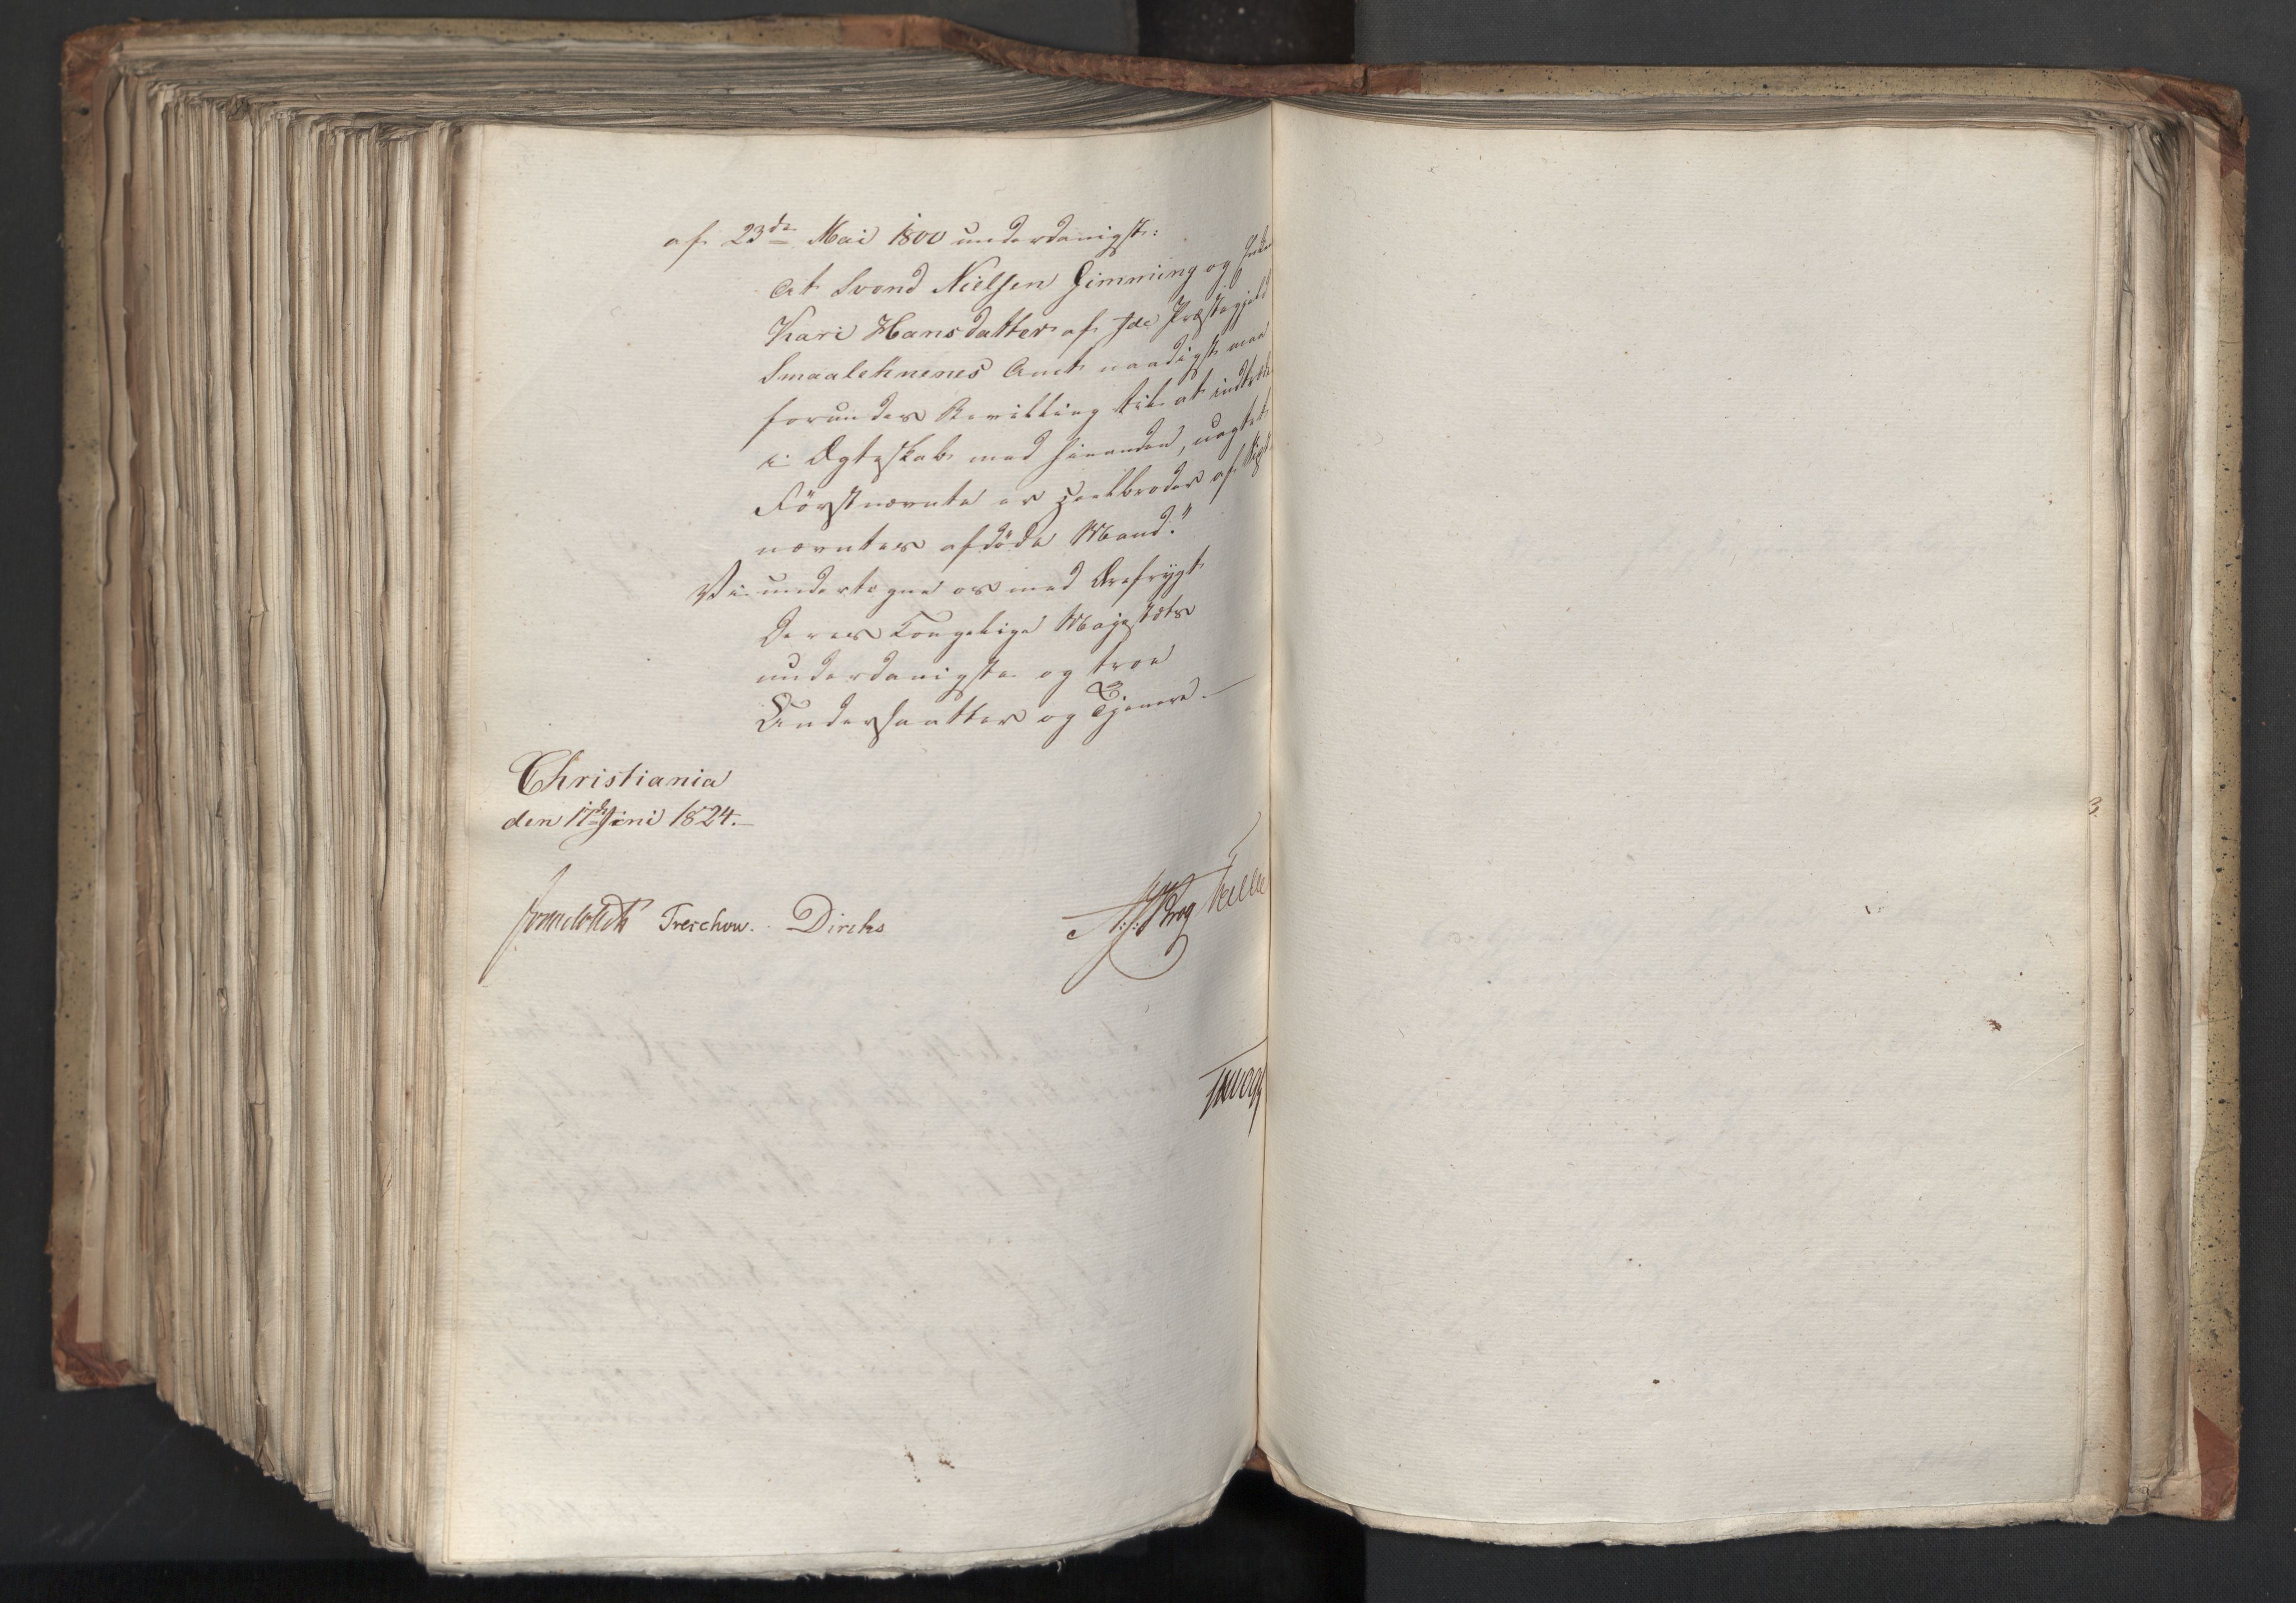 af 23de Mai 1800 underdanigst:
At Svend Nielsen Gimming og Enken
Kari Hansdatter af Ide Præstegjeld
Smaalehnenes Amt naadigst maa
forundes Bevilling til at indtræde
i Ægteskab med hinanden, uagtet
Förstnævnte er Halvbroder af Sidst-
nævntes afdöde Mand."
Vi undertegne os med Ærefrygt
Deres Kongelige Majestæts
underdanigste og troe
Undersaatter og Tjenere.
Christiania
den 17de Juni 1824.
Sommerfeldt Treschow. Diriks
Krog
3